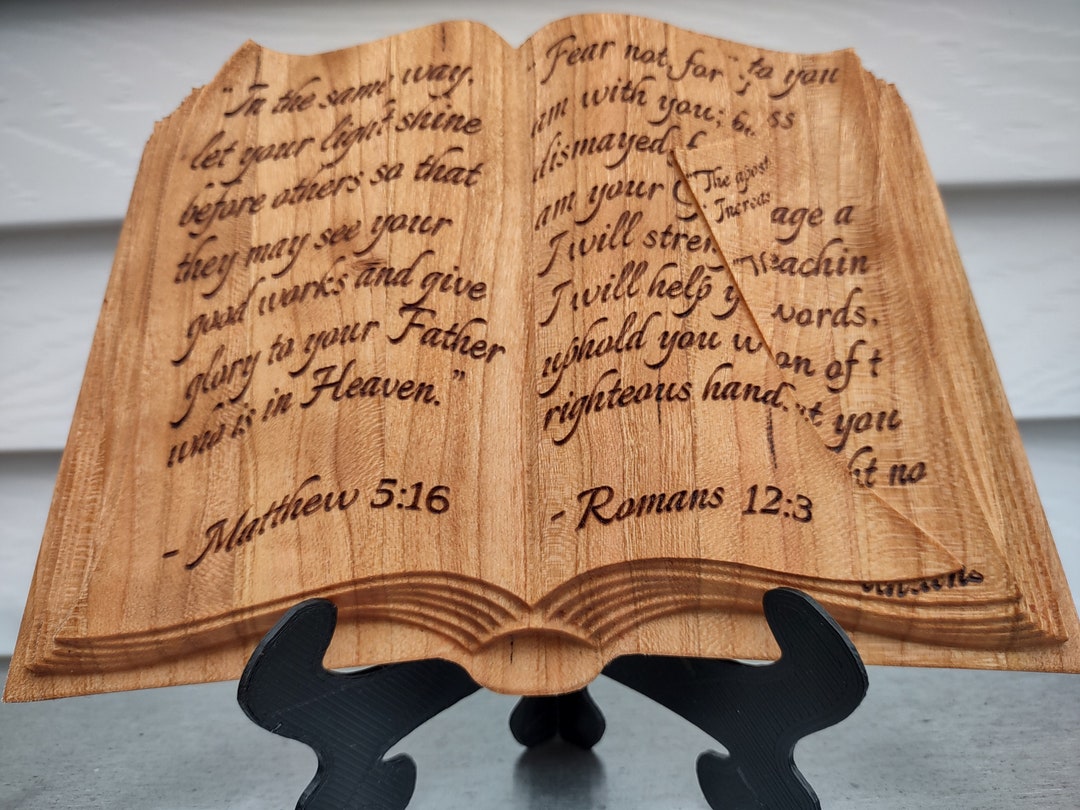 "In the same way,
let your light shine
before others so that
they may see your
good works and give
glory to your Father
who is in Heaven."
- Matthew 5:16
"Fear not, for
am with you; be
dismayed,
am your G
I will stren
I will help y
uphold you w
righteous hand.
- Romans 12:3
to you
ss
"The apost
Increas
age a
"Teachin
words,
on of t
t you
ht no